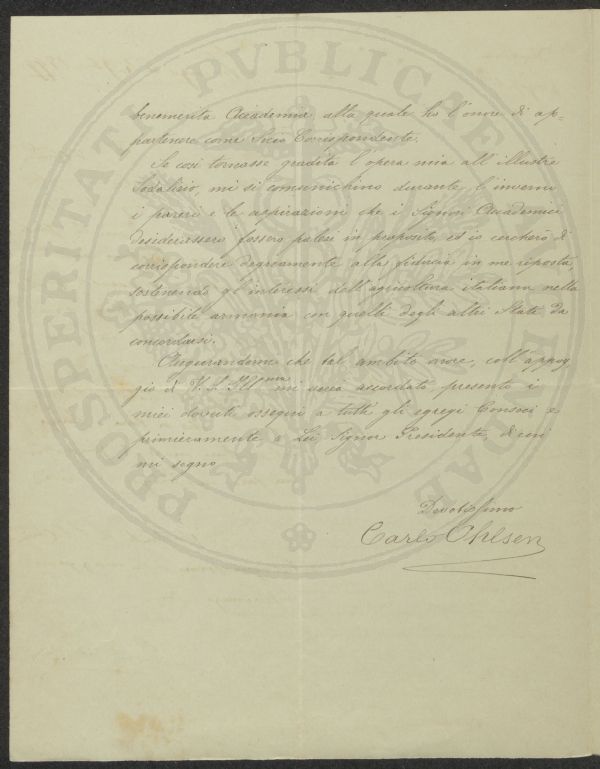 benemerita Accademia, alla quale ho l'onore di ap=
partenere come Socio Corrispondente.
Se così tornasse gradita l'opera mia all'illustre
Sodalizio, mi si comunichino durante l'inverno
i pareri e le aspirazioni che i Signori Accademici
desiderassero fossero palesi in proposito, ed io cercherò di
corrispondere degnamente alla fiducia in me riposta,
sostenendo gl'interessi dell'agricoltura italiana nella
possibile armonia con quelli degli altri Stati da
concordarsi.
Augurandomi che tal ambito onore, coll'appog
gio di V. S. Ill.ma mi accordato, presento i
miei dovuti ossequi a tutti gli egregi Consoci e
primieramente a Lei Signor Presidente, di cui
mi segno
Devotissimo
Carlo Ohlsen
PROSPERITATI PVBLICAE